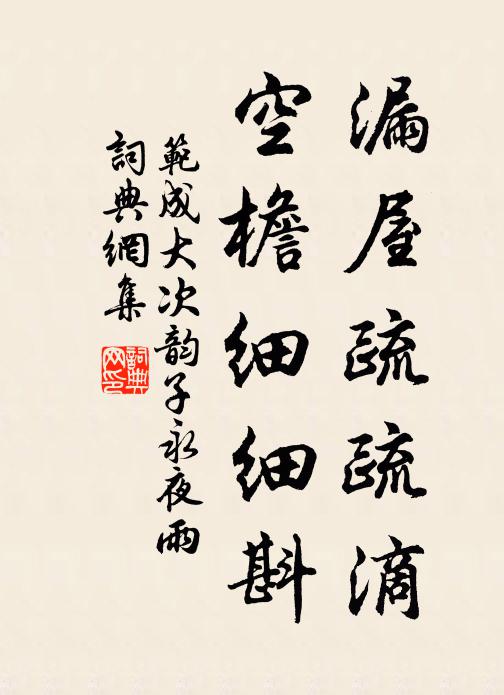 漏屋疏疏滴
空檐細細斟
範成大次韵子永夜雨
詞典網集
詞典网印